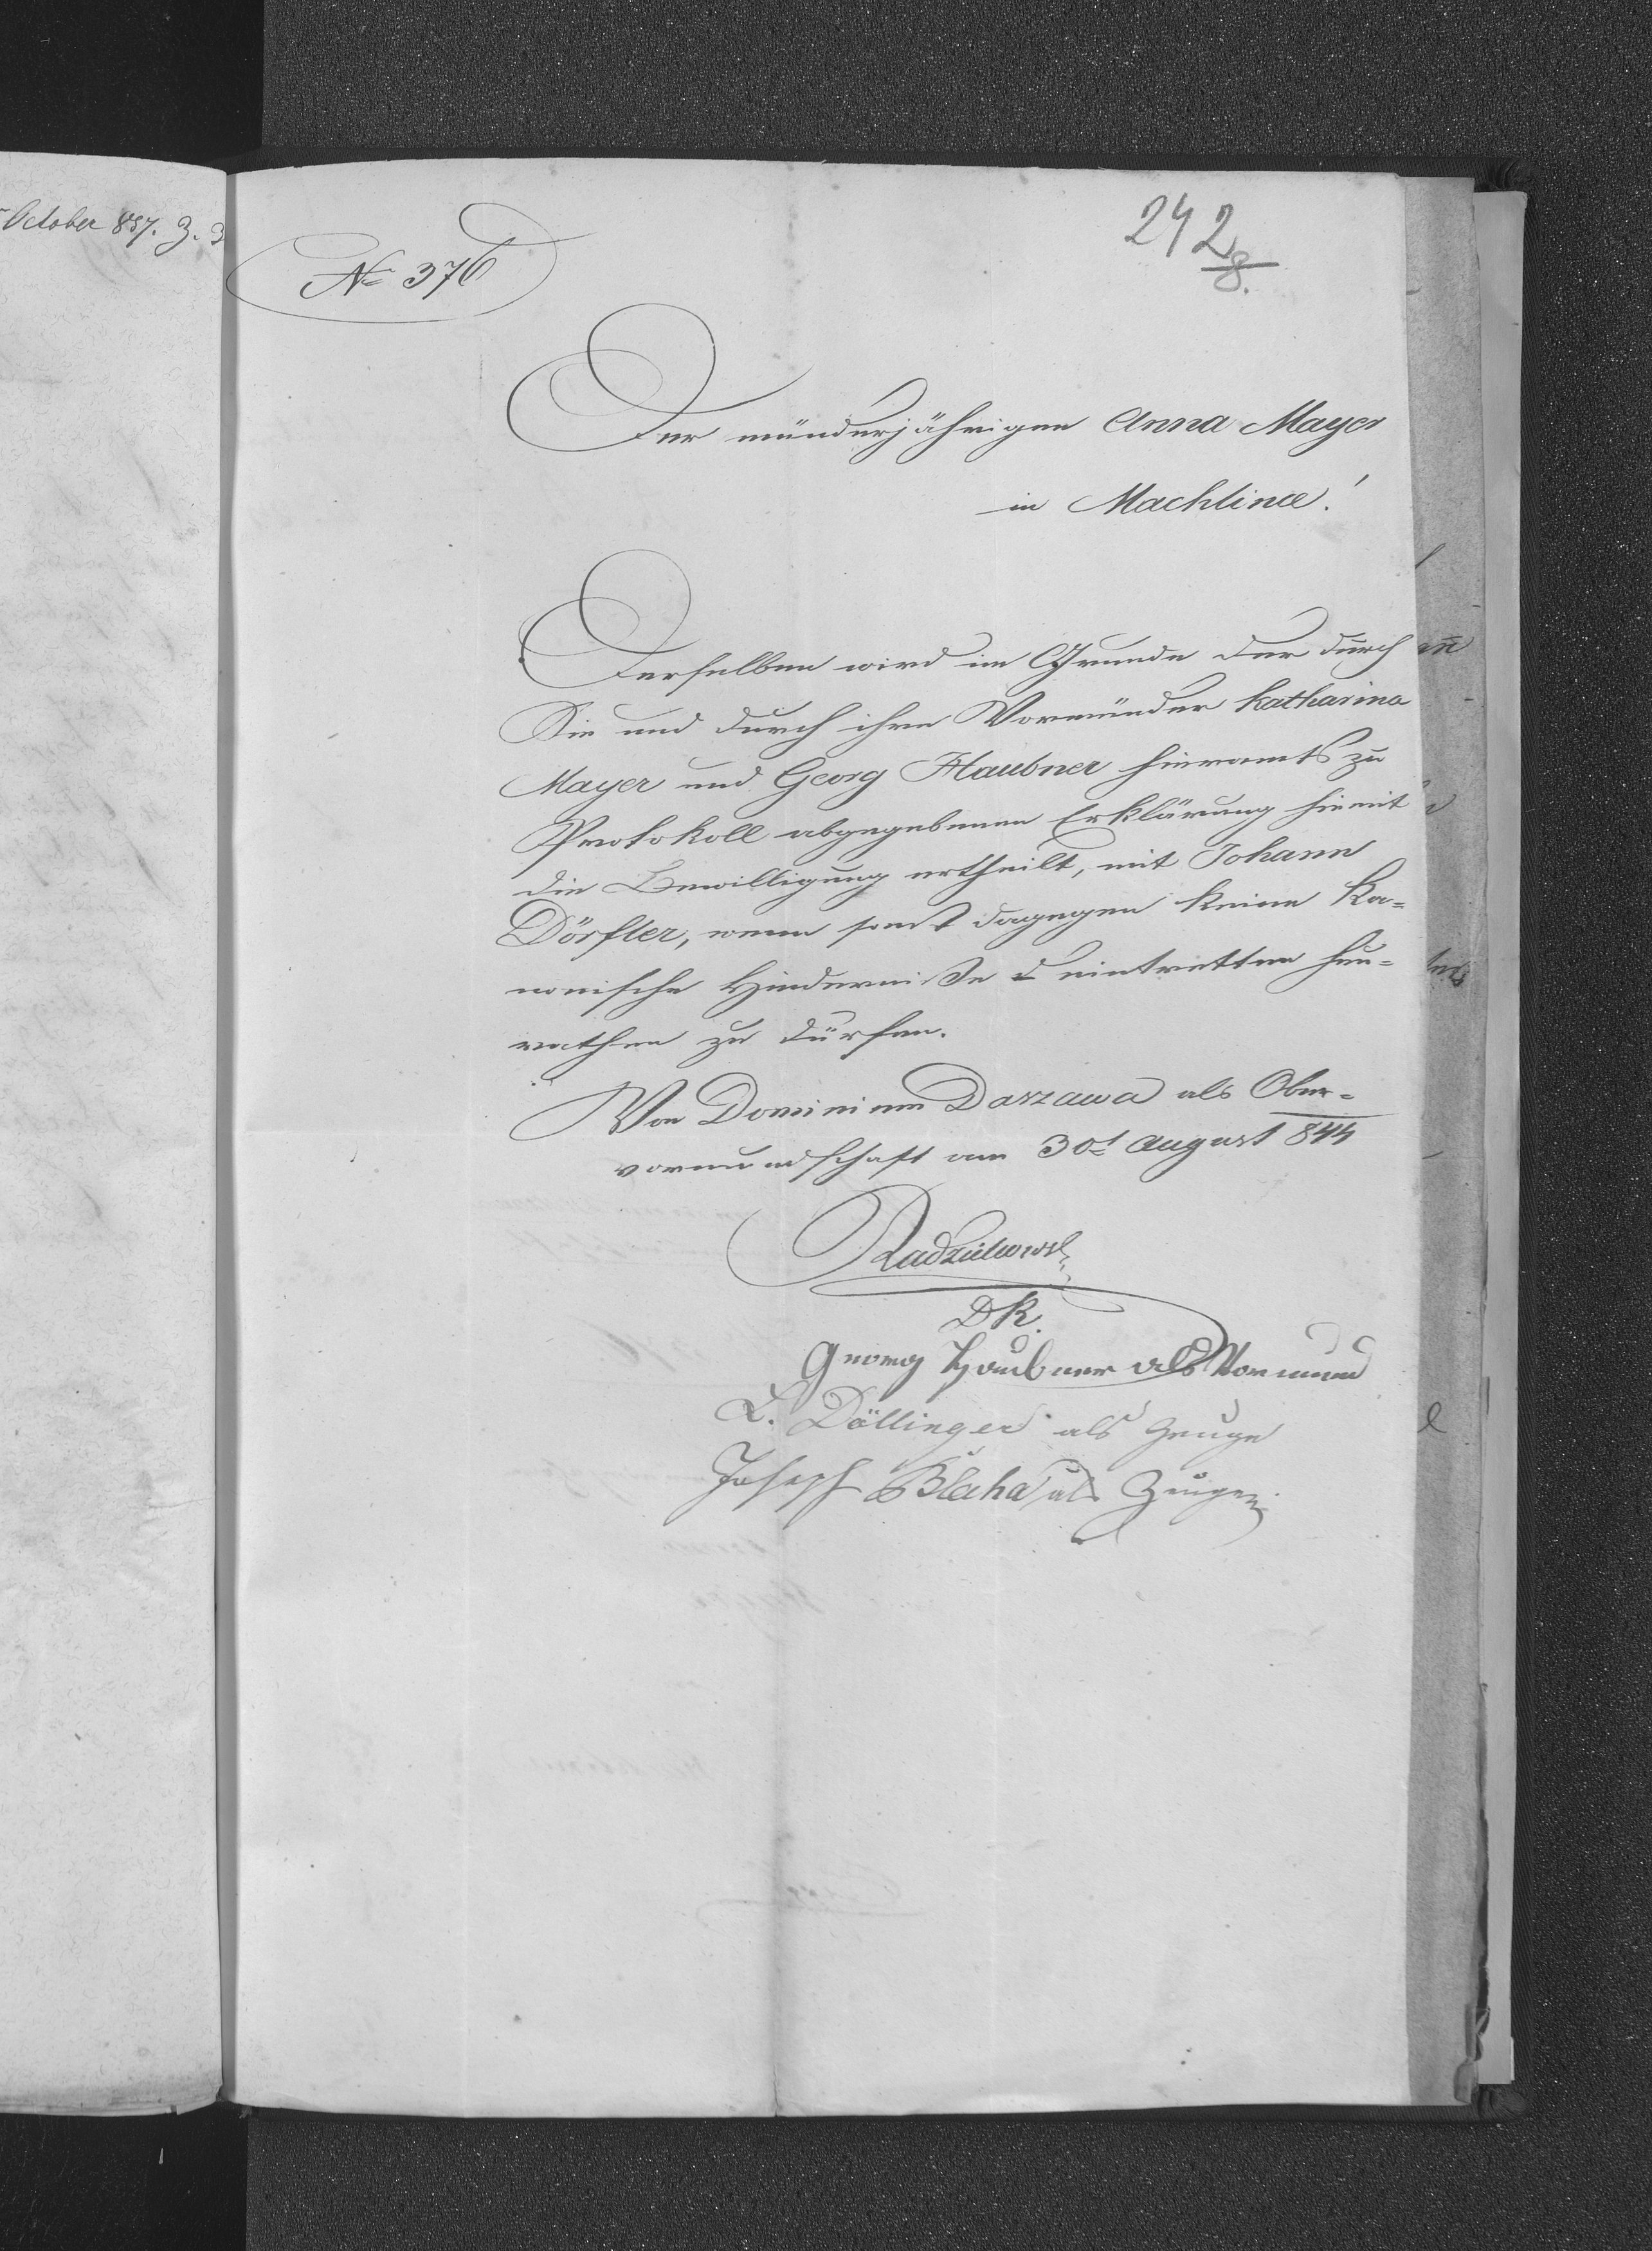 October 857. Z. 3
№ 376
242
8.
Der münderjährigen Anna Mayer
in Machlince!
Derselben wird im Grunde der durch
Sie und durch ihre Vormünder Katharina
Mayer und Georg Haubner hieramts zu
Protokoll abgegebenen Erklärung hiemit
die Bewilligung ertheilt, mit Johann
Dörfler, wenn sonst dagegen keine Ka-
nonische Hinderniße eintretten heu-
rathen zu dürfen.
Von Dominium Daszawa als Ober-
vormundschaft am 30t August 844
Radziełowsk
DR.
Georg Haubner als Vormund
L. Döllinger als Zeuge
Joseph Blaha als Zeuge